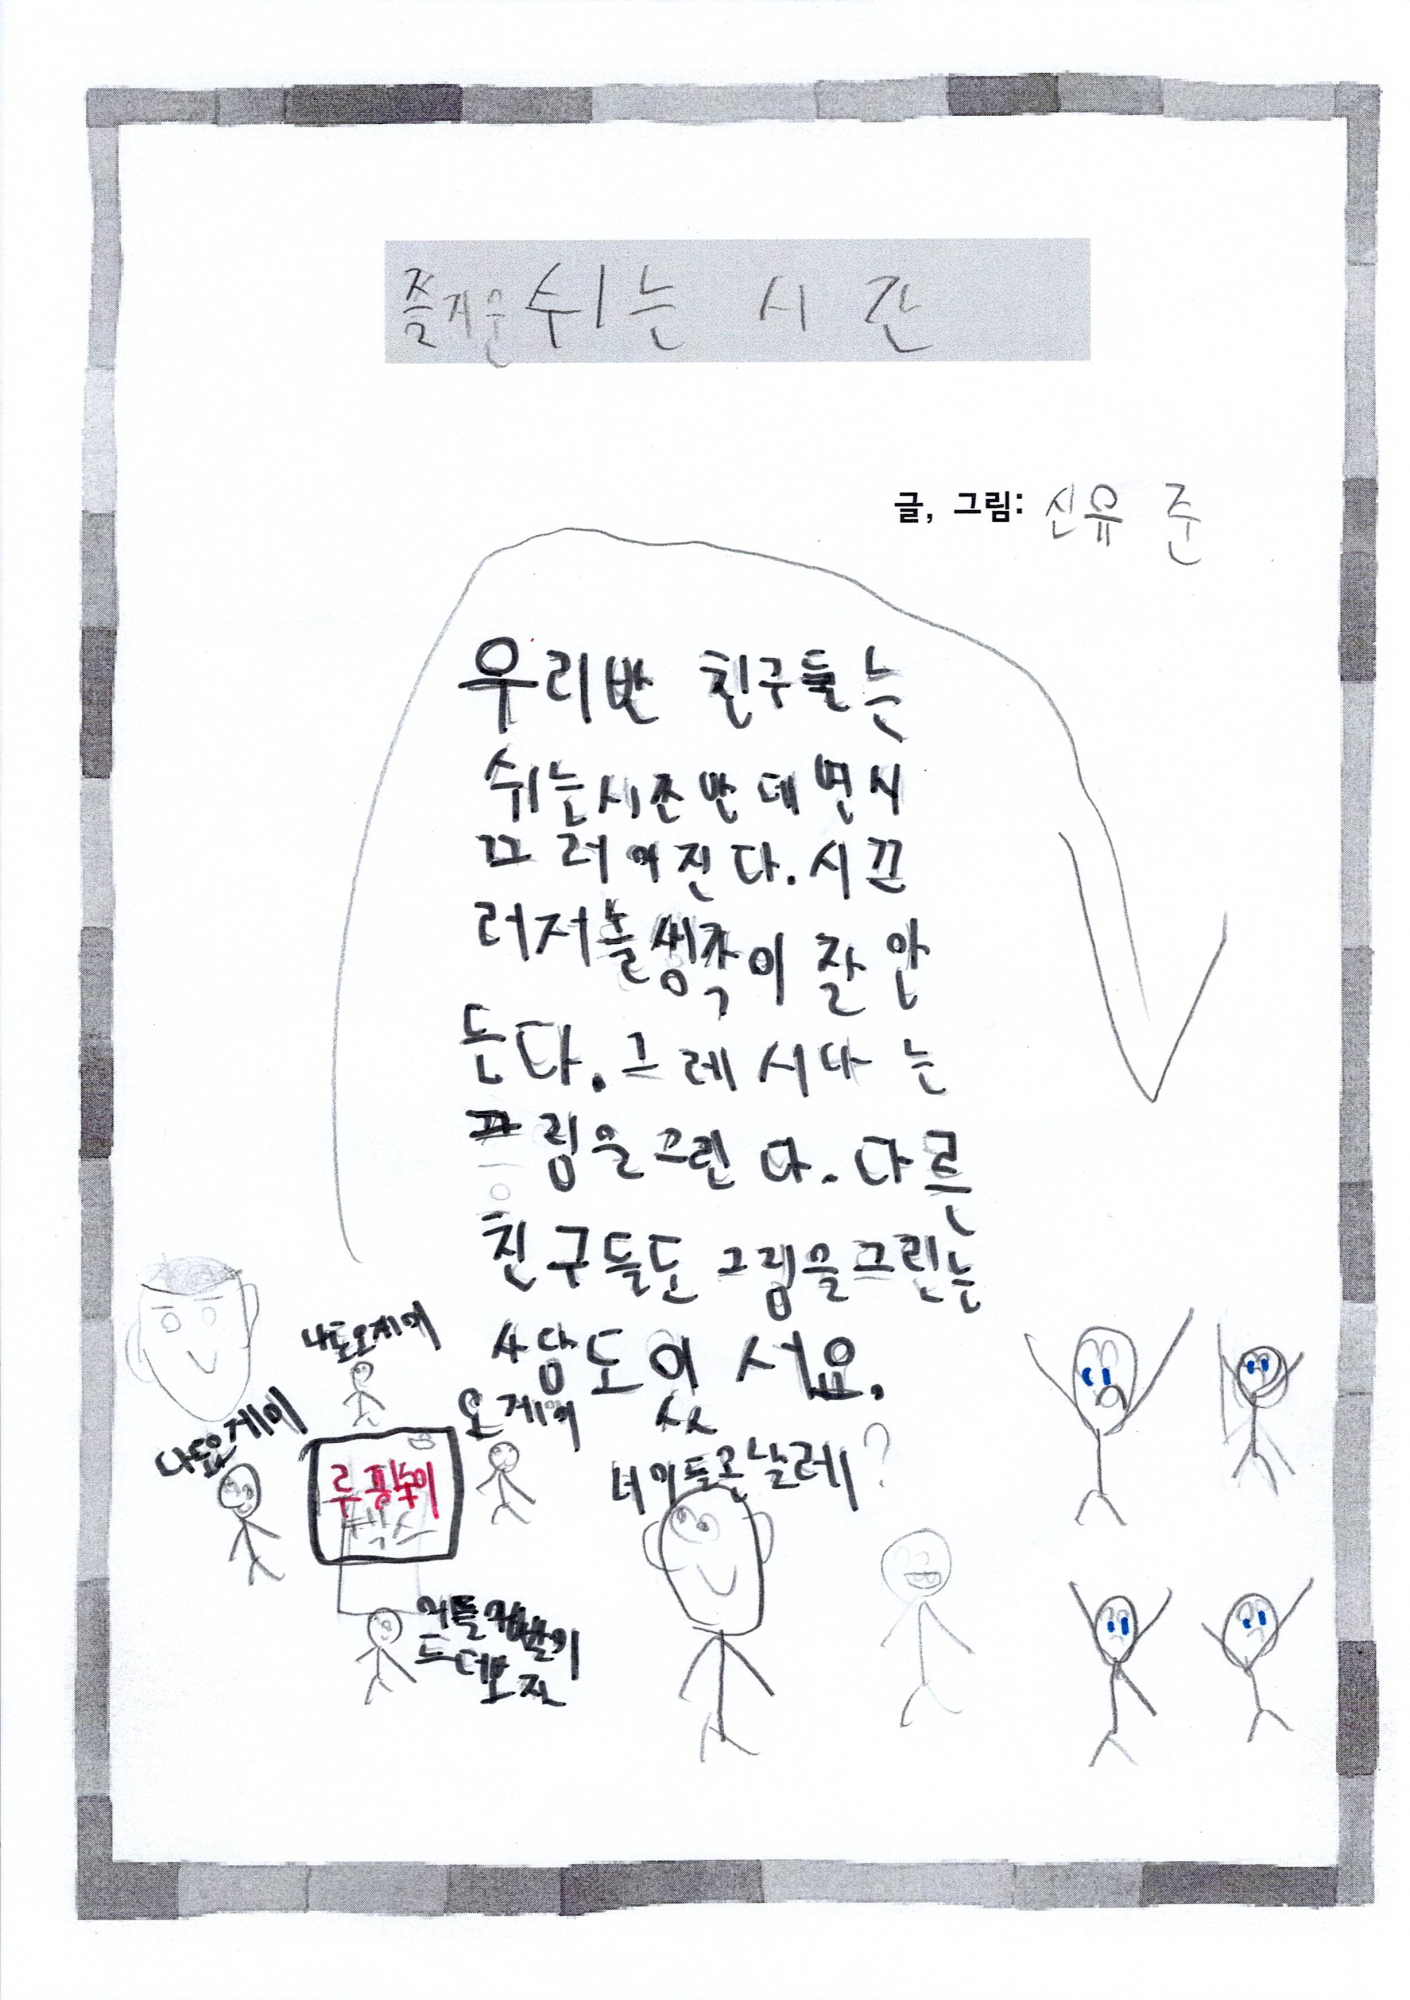 즐거운 쉬는 시간
글, 그림: 신유준
우리반 친구들는
쉬는시간만 데면시
끄러어진다. 시끈
러저놀생각이 잘 안
든다. 그레서나 는
끄림을 그린 다. 다른
친구들도 그림을그린는
사담도 있 서요.
나도오게이
나도요게이
오게이
너이들은날레?